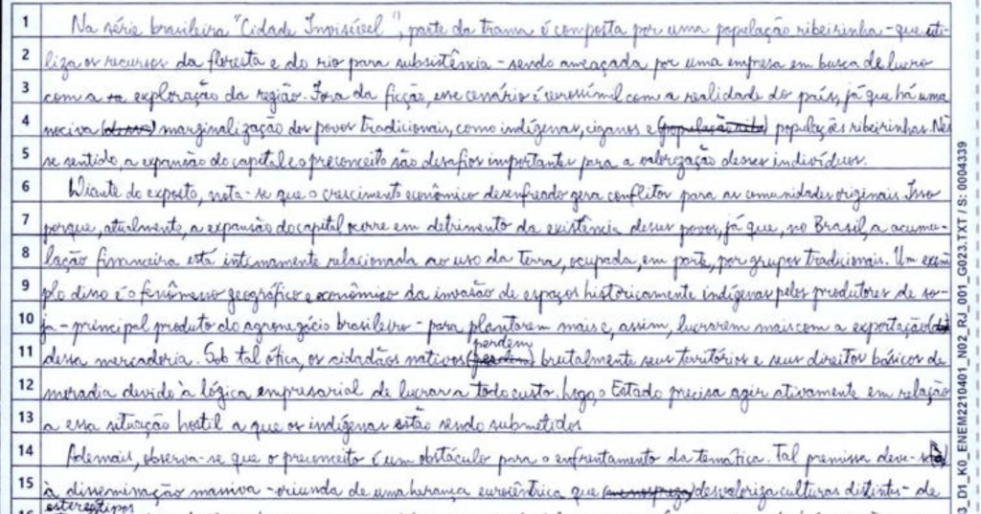 1 Na série brasileira "Cidade Invisível", parte da trama é composta por uma população ribeirinha - que uti-
2 liza os recursos da floresta e do rio para subsistência - sendo ameaçada por uma empresa em busca de lucro
3 com a exploração da região. Fora da ficção, esse cenário é verossímil com a realidade do país, já que há uma
4 nociva marginalização dos povos tradicionais, como indígenas, ciganos e populações ribeirinhas. Nes
5 se sentido, a expansão do capital e o preconceito são desafios importantes para a valorização desses indivíduos.
6 Diante do exposto, nota-se que o crescimento econômico desenfreado gera conflitos para as comunidades originais. Isso
7 porque, atualmente, a expansão do capital ocorre em detrimento da existência desses povos, já que, no Brasil, a acumu-
8 lação financeira está intimamente relacionada ao uso da terra, ocupada, em parte, por grupos tradicionais. Um exem
9 plo disso é o fenômeno geográfico e econômico da invasão de espaços historicamente indígenas pelos produtores de so-
10 ja - principal produto do agronegócio brasileiro - para plantarem mais e, assim, lucrarem mais com a exportação
11 dessa mercadoria. Sob tal ótica, os cidadãos nativos perdem brutalmente seus territórios e seus direitos básicos de
12 moradia devido à lógica empresarial de lucrar a todo custo. Logo, o Estado precisa agir ativamente em relação
13 a essa situação hostil a que os indígenas estão sendo submetidos
14 Ademais, observa-se que o preconceito é um obstáculo para o enfrentamento da temática. Tal premissa deve-se
15 à disseminação massiva - oriunda de uma herança eurocêntrica que desvaloriza culturas distintas - de
estereótipos
3_D1_K0_ENEM2210401_N02_RJ_001_G023.TXT / S: 0004339